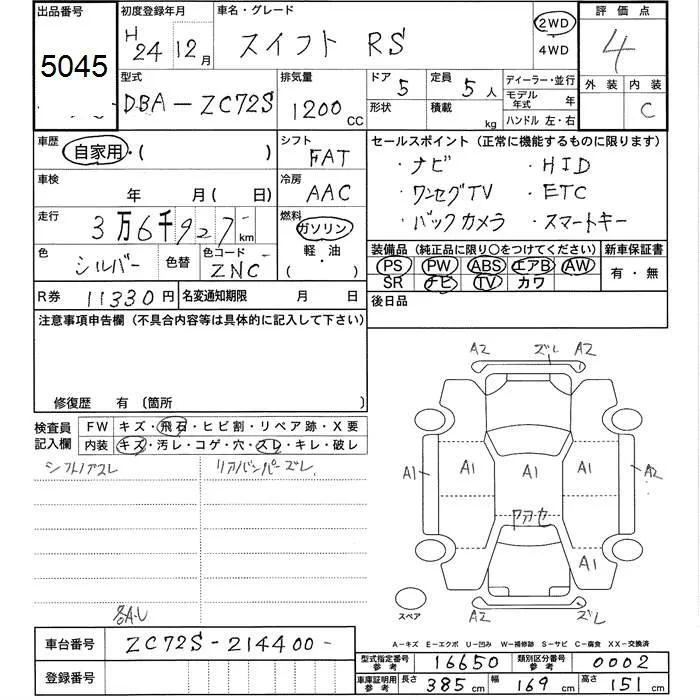 出品番号 初度登録年月 車名・グレード 評価点
5045 H24 12月 スイフト RS 2WD 4WD 4
外装 内装
C
型式 排気量 ドア 定員 ディーラー・並行
DBA-ZC72S 1200CC 5 5人 モデル年式 年
形状 積載 kg ハンドル 左・右
車歴 シフト セールスポイント(正常に機能するものに限ります)
自家用・( ) FAT ・ナビ ・HID
車検 冷房 ・ワンセグTV ・ETC
年 月( 日) AAC ・バックカメラ ・スマートキー
走行 燃料
3万6千927km ガソリン
軽・油
( )
色 色替 色コード 装備品(純正品に限り○をつけてください) 新車保証書
シルバー ZNC PS PW ABS エアB AW 有・無
SR ナビ TV カワ
R券 11330円 名変通知期限 月 日 後日品
注意事項申告欄(不具合内容等は具体的に記入して下さい)
修復歴 有 〔箇所
検査員 FW キズ・飛石・ヒビ割・リペア跡・X要
記入欄 内装 キズ・汚レ・コゲ・穴・スレ・キレ・破レ
シフトノブスレ リアバンパーズレ
A2 ズレ A2
A1 A1 A1 A1 A2
ワンセ
A1
スペア A2 ズレ
A-キズ E-エクボ U-凹み W-補修跡 S-サビ C-腐食 XX-交換済
車台番号 ZC72S-214400-
登録番号
型式指定番号 参考 16650 類別区分番号 参考 0002
車庫証明用 参考 長さ 385cm 幅 169cm 高さ 151cm